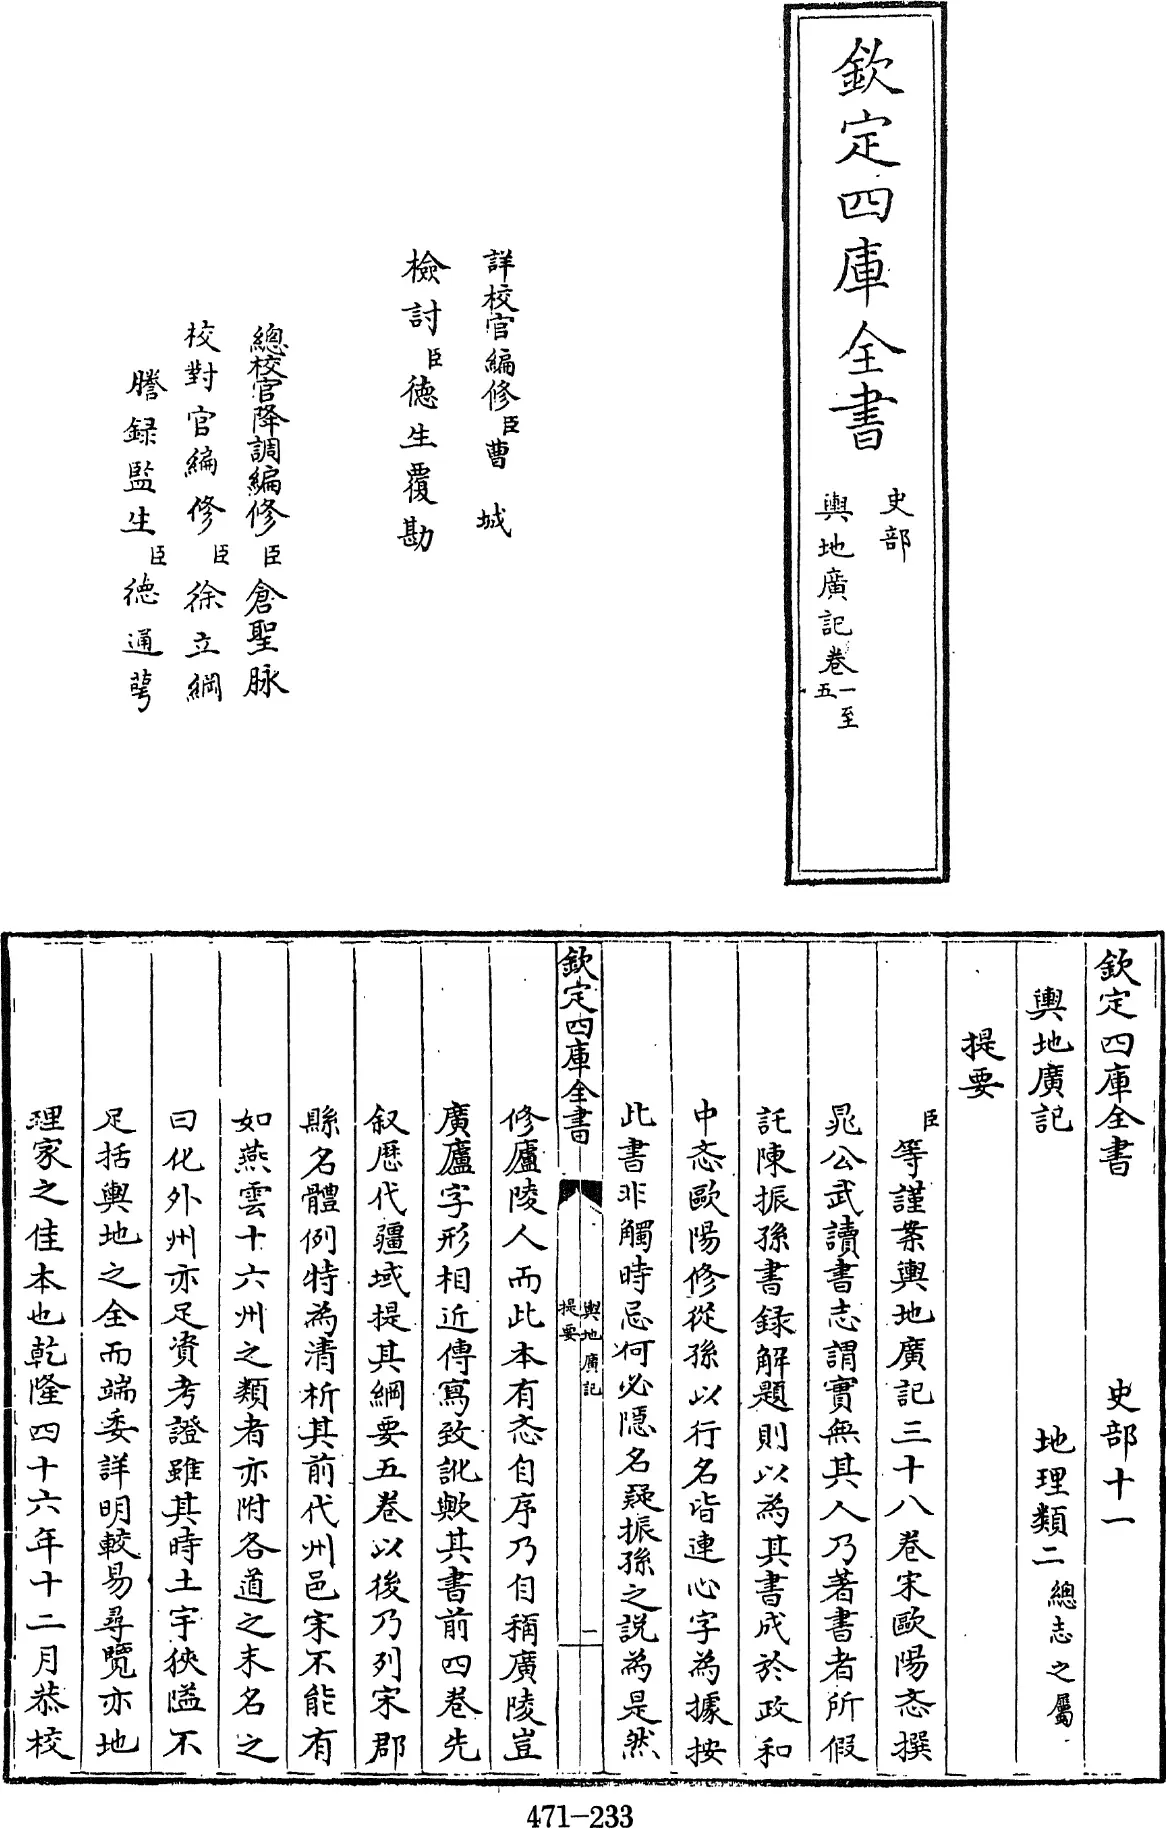 欽定四庫全書
史部
輿地廣記卷一至五
詳校官編修臣曹城
檢討臣德生覆勘
總校官降調編修臣倉聖脉
校對官編修臣徐立綱
謄録監生臣德通萼
欽定四庫全書 史部十一
輿地廣記 地理類二總志之屬
提要
臣等謹案輿地廣記三十八卷宋歐陽忞撰
晁公武讀書志謂實無其人乃著書者所假
託陳振孫書録解題則以為其書成於政和
中忞歐陽修從孫以行名皆連心字為據按
此書非觸時忌何必隱名疑振孫之說為是然
欽定四庫全書 輿地廣記提要 一
修廬陵人而此本有忞自序乃自稱廣陵豈
廣廬字形相近傳寫致訛歟其書前四卷先
叙歴代疆域提其綱要五卷以後乃列宋郡
縣名體例特為清析其前代州邑宋不能有
如燕雲十六州之類者亦附各道之末名之
曰化外州亦足資考證雖其時土宇狹隘不
足括輿地之全而端委詳明較易尋覽亦地
理家之佳本也乾隆四十六年十二月恭校
471-233